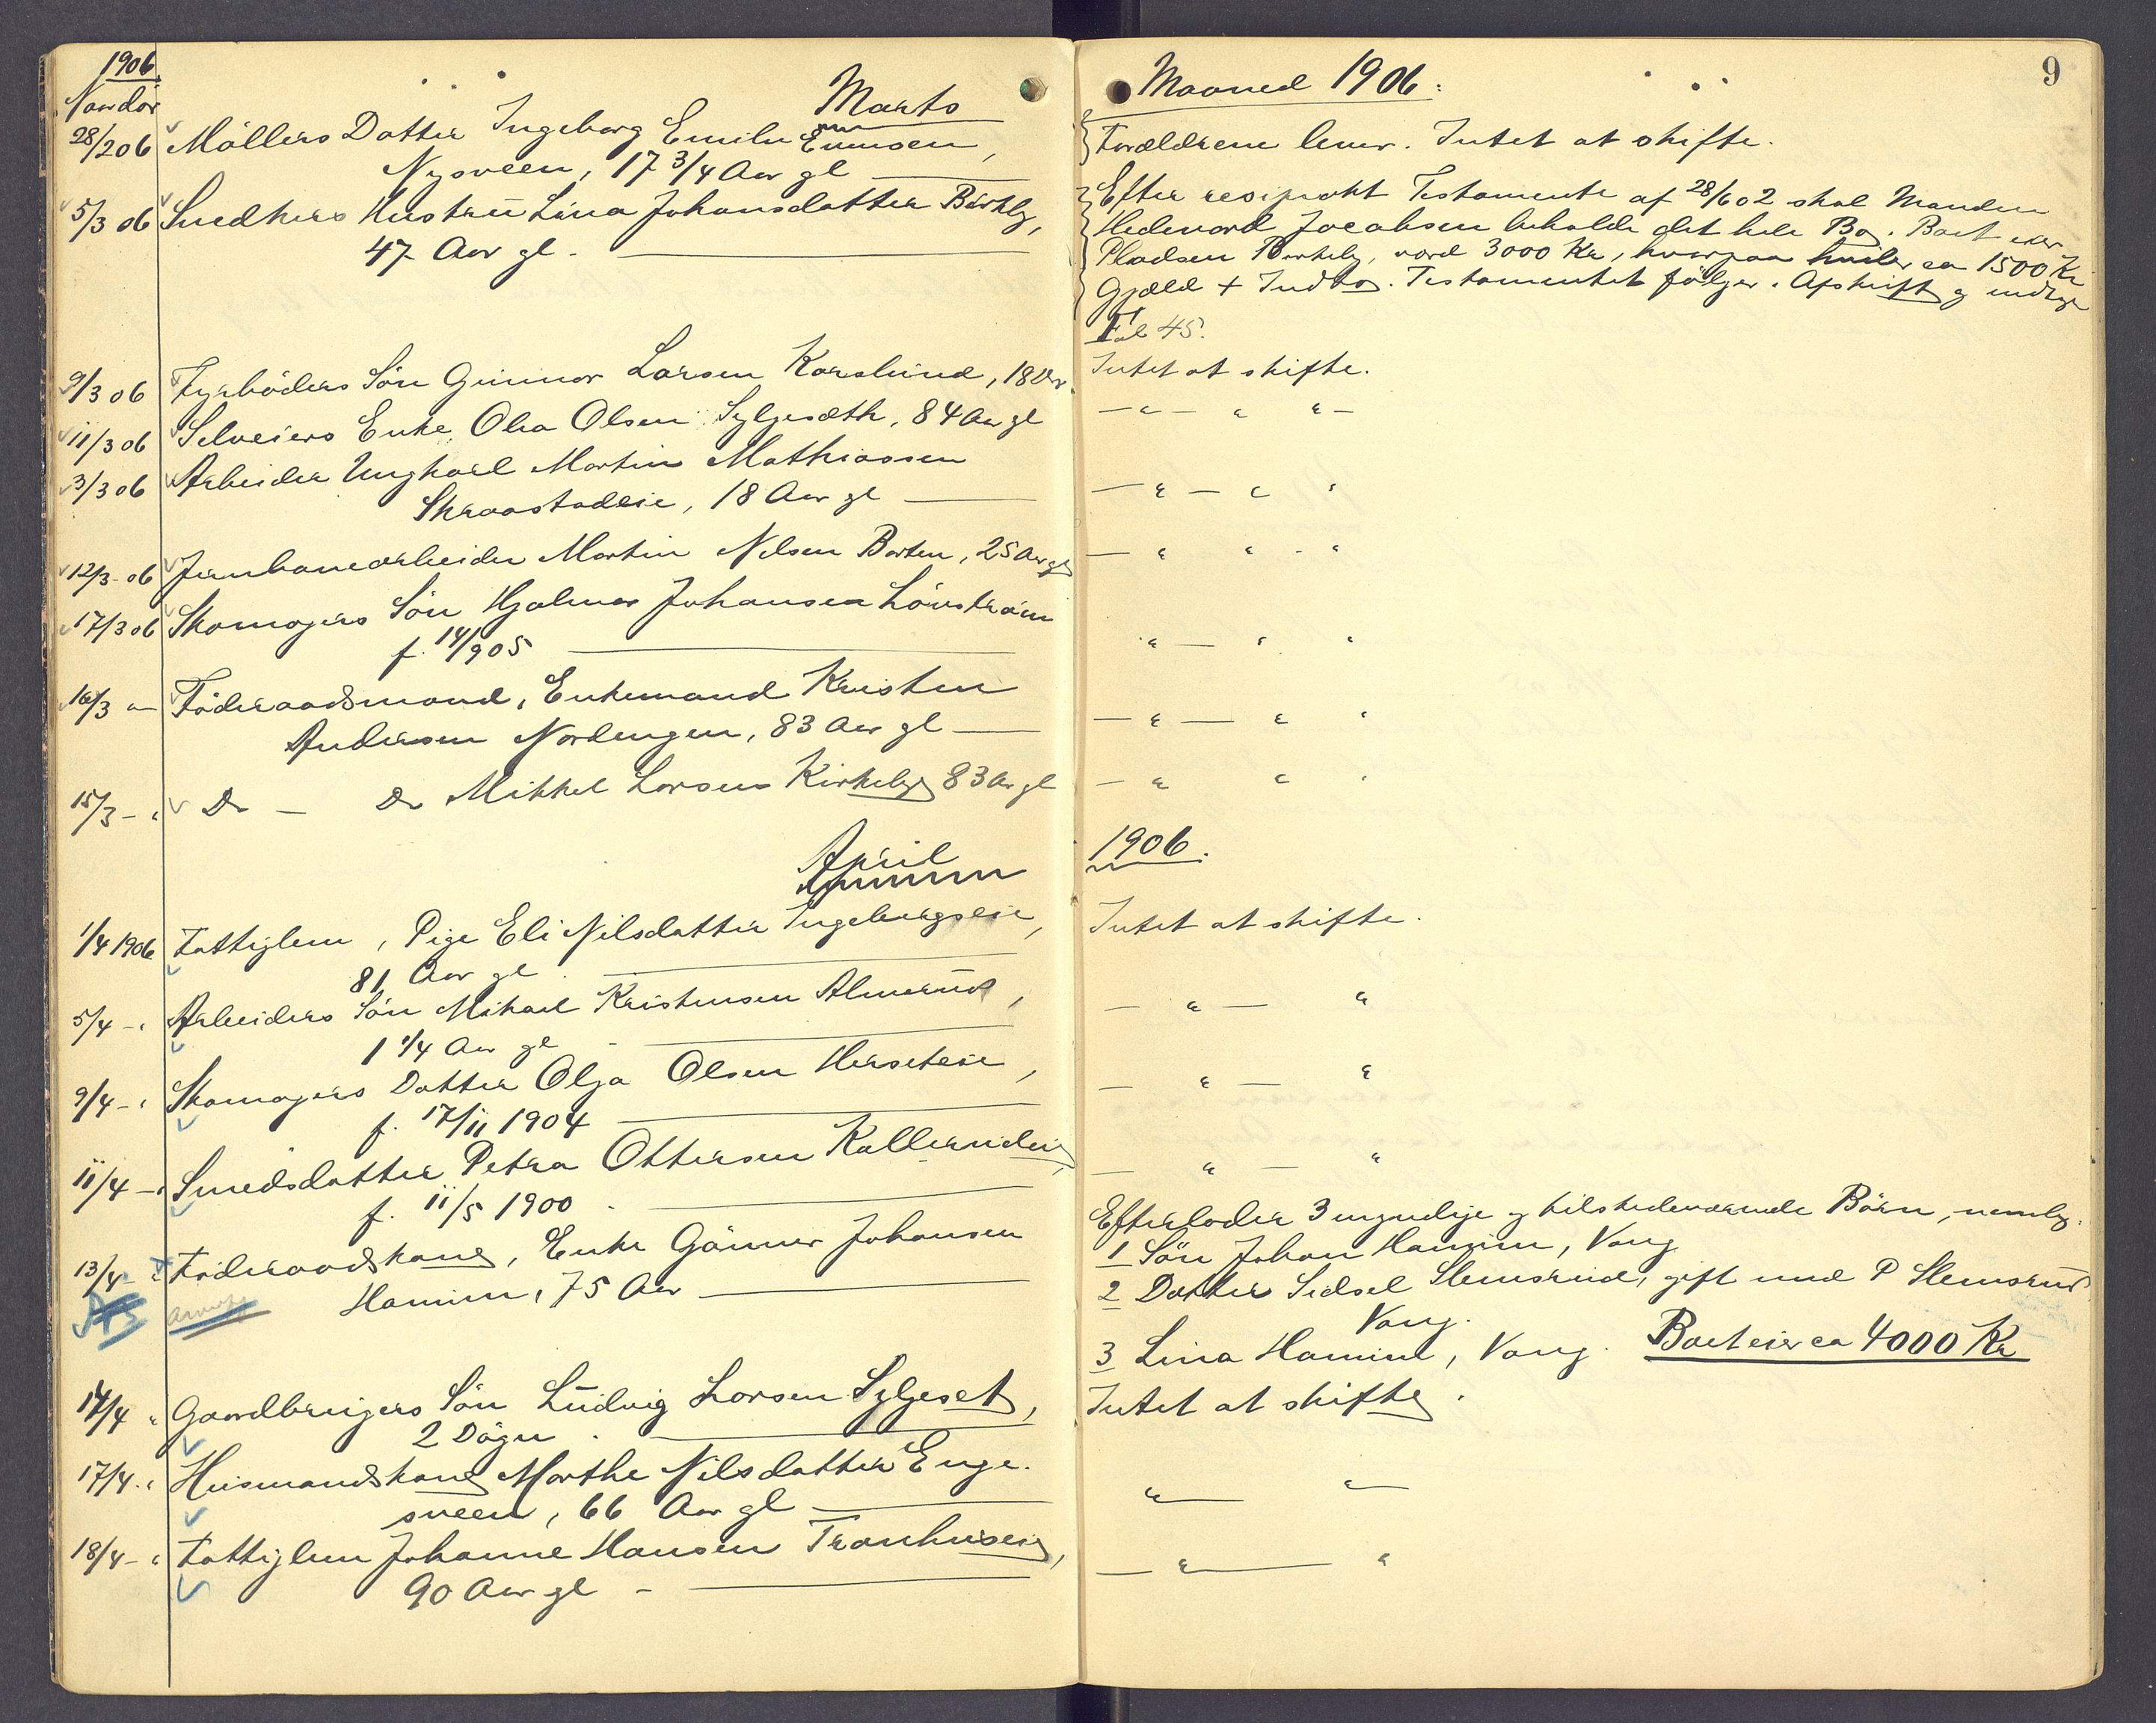 1906
Naar dör
Marts
28/2 06 Möllers Datter Ingeborg Emilie Evensen,
Nysveen, 17 3/4 Aar gl
5/3 06 Snedkers Hustru Lina Johansdatter Birkely,
47 Aar gl.
9/3 06 Fyrböders Sön Gunnar Larsen Karslund, 18 Aar
11/3 06 Selveiers Enke Olea Olsen Syljesæth, 84 Aar gl
3/3 06 Arbeider Ungkarl Martin Mathiassen
Skraastadeie, 18 Aar gl
12/3-06 Jernbanearbeider Martin Nilsen Borten, 25 Aar gl
17/3 06 Skomagers Sön Hjalmar Johansen Lövström
f. 14/9 05
16/3 " Föderaadsmand, Enkemand Kristen
Andersen Nordengen, 83 Aar gl
15/3 - " Do - Do Mikkel Larsen Kirkeby 83 Aar gl
April
1/4 1906 Fattiglem, Pige Eli Nilsdatter Ingebergseie,
81 Aar gl.
5/4 - " Arbeiders Sön Mikael Kristensen Almerud,
1 1/4 Aar gl
9/4 - " Skomagers Datter Olga Olsen Herseteie,
f. 17/11 1904
11/4 - " Smedsdatter Petra Ottersen Kallerudeie,
f. 11/5 1900
13/4 " Föderaadskone, Enke Gönner Johansen
Hamim, 75 Aar
14/4 " Gaardbrugers Sön Ludvig Larsen Syljeset,
2 Dögn.
17/4 " Husmandskone Marthe Nilsdatter Enge-
sveen, 66 Aar gl
18/4 - " Fattiglem Johanne Hansen Tranhuseie,
90 Aar gl -
Maaned 1906:
9
Forældrene lever. Intet at skifte.
Efter resiprokt Testamente af 28/6 02 skal Manden
Hedevard Jacobsen beholde det hele Bo. Boet eier
Pladsen Birkely, værd 3000 Kr, hvorpaa hviler ca 1500 Kr
Gjæld + Indbo. Testamentet följer. Afskrift og
Fol 45.
Intet at skifte.
— " — " " —
— " — " "
— " " - "
" — " "
— " — " "
— " " "
1906.
Intet at skifte.
— " — "
— " — "
— " — "
Efterlader 3 myndige og tilstedeværende Börn, nemlig:
1 Sön Johan Hamim, Vang
2 Datter Sidsel Slemsrud, gift med P Slemsrud
Vang.
3 Lina Hamim, Vang. Boet eier ca 4000 Kr
Intet at skifte.
" — " —
— " — "